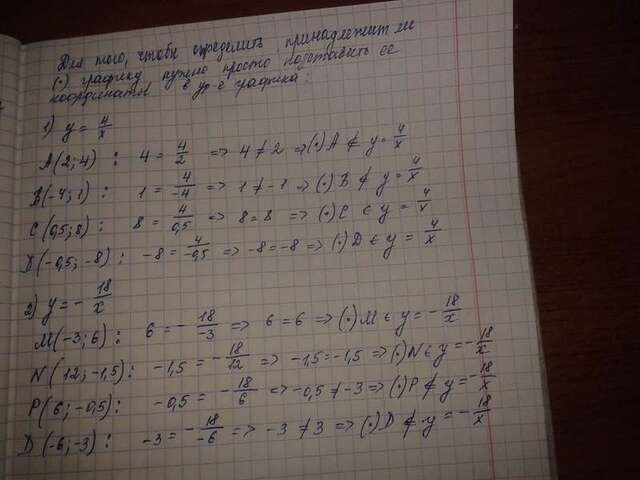 Для того, чтобы определить принадлежит ли
(•) графику нужно просто подставить ее
координаты в ур-е графика:
1) y = 4/x
A(2; 4) : 4 = 4/2 => 4 ≠ 2 => (•) A ∉ y = 4/x
B(-4; 1) : 1 = 4/-4 => 1 ≠ -1 => (•) B ∉ y = 4/x
C(0,5; 8) : 8 = 4/0,5 => 8 = 8 => (•) C ∈ y = 4/x
D(-0,5; -8) : -8 = 4/-0,5 => -8 = -8 => (•) D ∈ y = 4/x
2) y = - 18/x
M(-3; 6) : 6 = - 18/-3 => 6 = 6 => (•) M ∈ y = - 18/x
N(12; -1,5) : -1,5 = - 18/12 => -1,5 = -1,5 => (•) N ∈ y = - 18/x
P(6; -0,5) : -0,5 = - 18/6 => -0,5 ≠ -3 => (•) P ∉ y = - 18/x
D(-6; -3) : -3 = - 18/-6 => -3 ≠ 3 => (•) D ∉ y = - 18/x